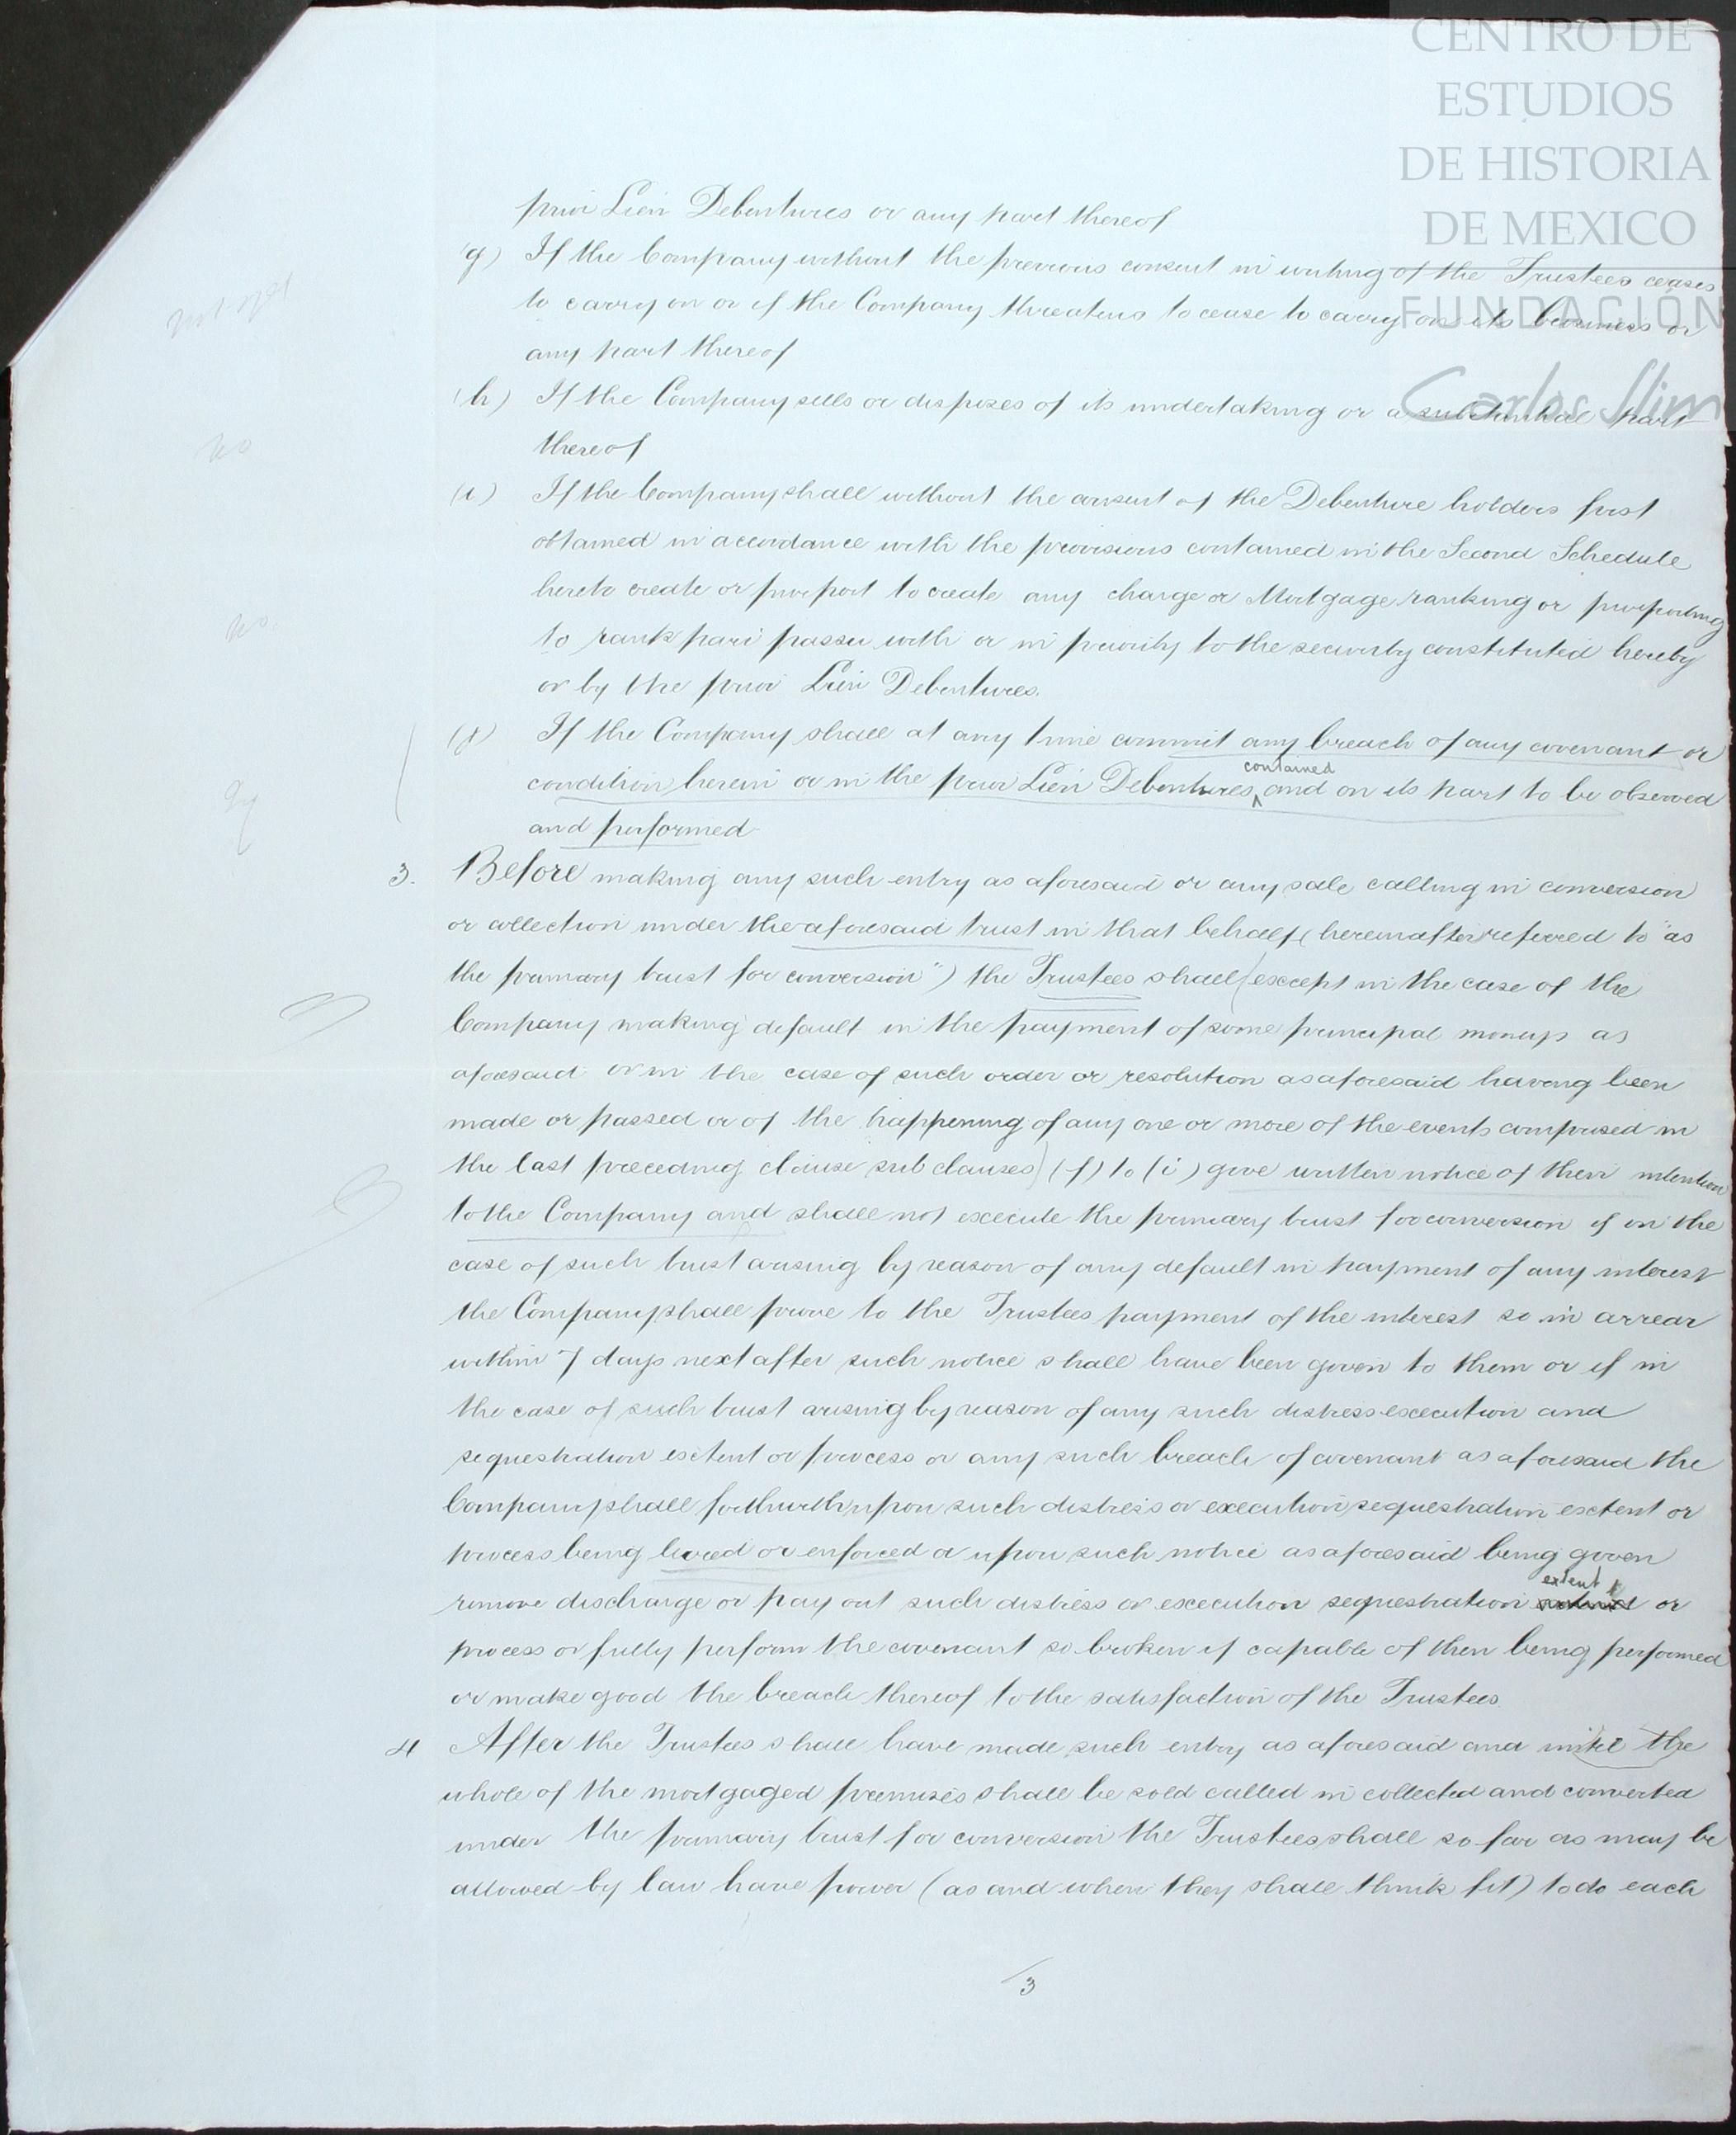 CENTRO DE
ESTUDIOS
DE HISTORIA
DE MEXICO
FUNDACIÓN
Carlos Slim
prior Lien Debentures or any part thereof
(g) If the Company without the previous consent in writing of the Trustees ceases
to carry on or if the Company threatens to cease to carry on its business or
any part thereof
not yet
(h) If the Company sells or disposes of its undertaking or a substantial part
thereof
no
(i) If the Company shall without the consent of the Debenture holders first
obtained in accordance with the provisions contained in the Second Schedule
hereto create or purport to create any charge or Mortgage ranking or purporting
no.
to rank pari passu with or in priority to the security constituted hereby
or by the prior Lien Debentures.
(j) If the Company shall at any time commit any breach of any covenant or
condition herein or in the prior Lien Debentures contained and on its part to be observed
and performed
3. Before making any such entry as aforesaid or any sale calling in conversion
or collection under the aforesaid trust in that behalf (hereinafter referred to "as
the primary trust for conversion") the Trustees shall (except in the case of the
Company making default in the payment of some principal moneys as
aforesaid or in the case of such order or resolution as aforesaid having been
made or passed or of the happening of any one or more of the events comprised in
the last preceding clause sub clauses) (f) to (i) give written notice of their intention
to the Company and shall not execute the primary trust for conversion if in the
case of such trust arising by reason of any default in payment of any interest
the Company shall prove to the Trustees payment of the interest so in arrear
within 7 days next after such notice shall have been given to them or if in
the case of such trust arising by reason of any such distress execution and
sequestration extent or process or any such breach of covenant as aforesaid the
Company shall forthwith upon such distress or execution sequestration extent or
process being levied or enforced or upon such notice as aforesaid being given
remove discharge or pay out such distress or execution sequestration extent or
process or fully perform the covenant so broken if capable of then being performed
or make good the breach thereof to the satisfaction of the Trustees
4 After the Trustees shall have made such entry as aforesaid and until the
whole of the mortgaged premises shall be sold called in collected and converted
under the primary trust for conversion the Trustees shall so far as may be
allowed by law have power (as and when they shall think fit) to do each
3